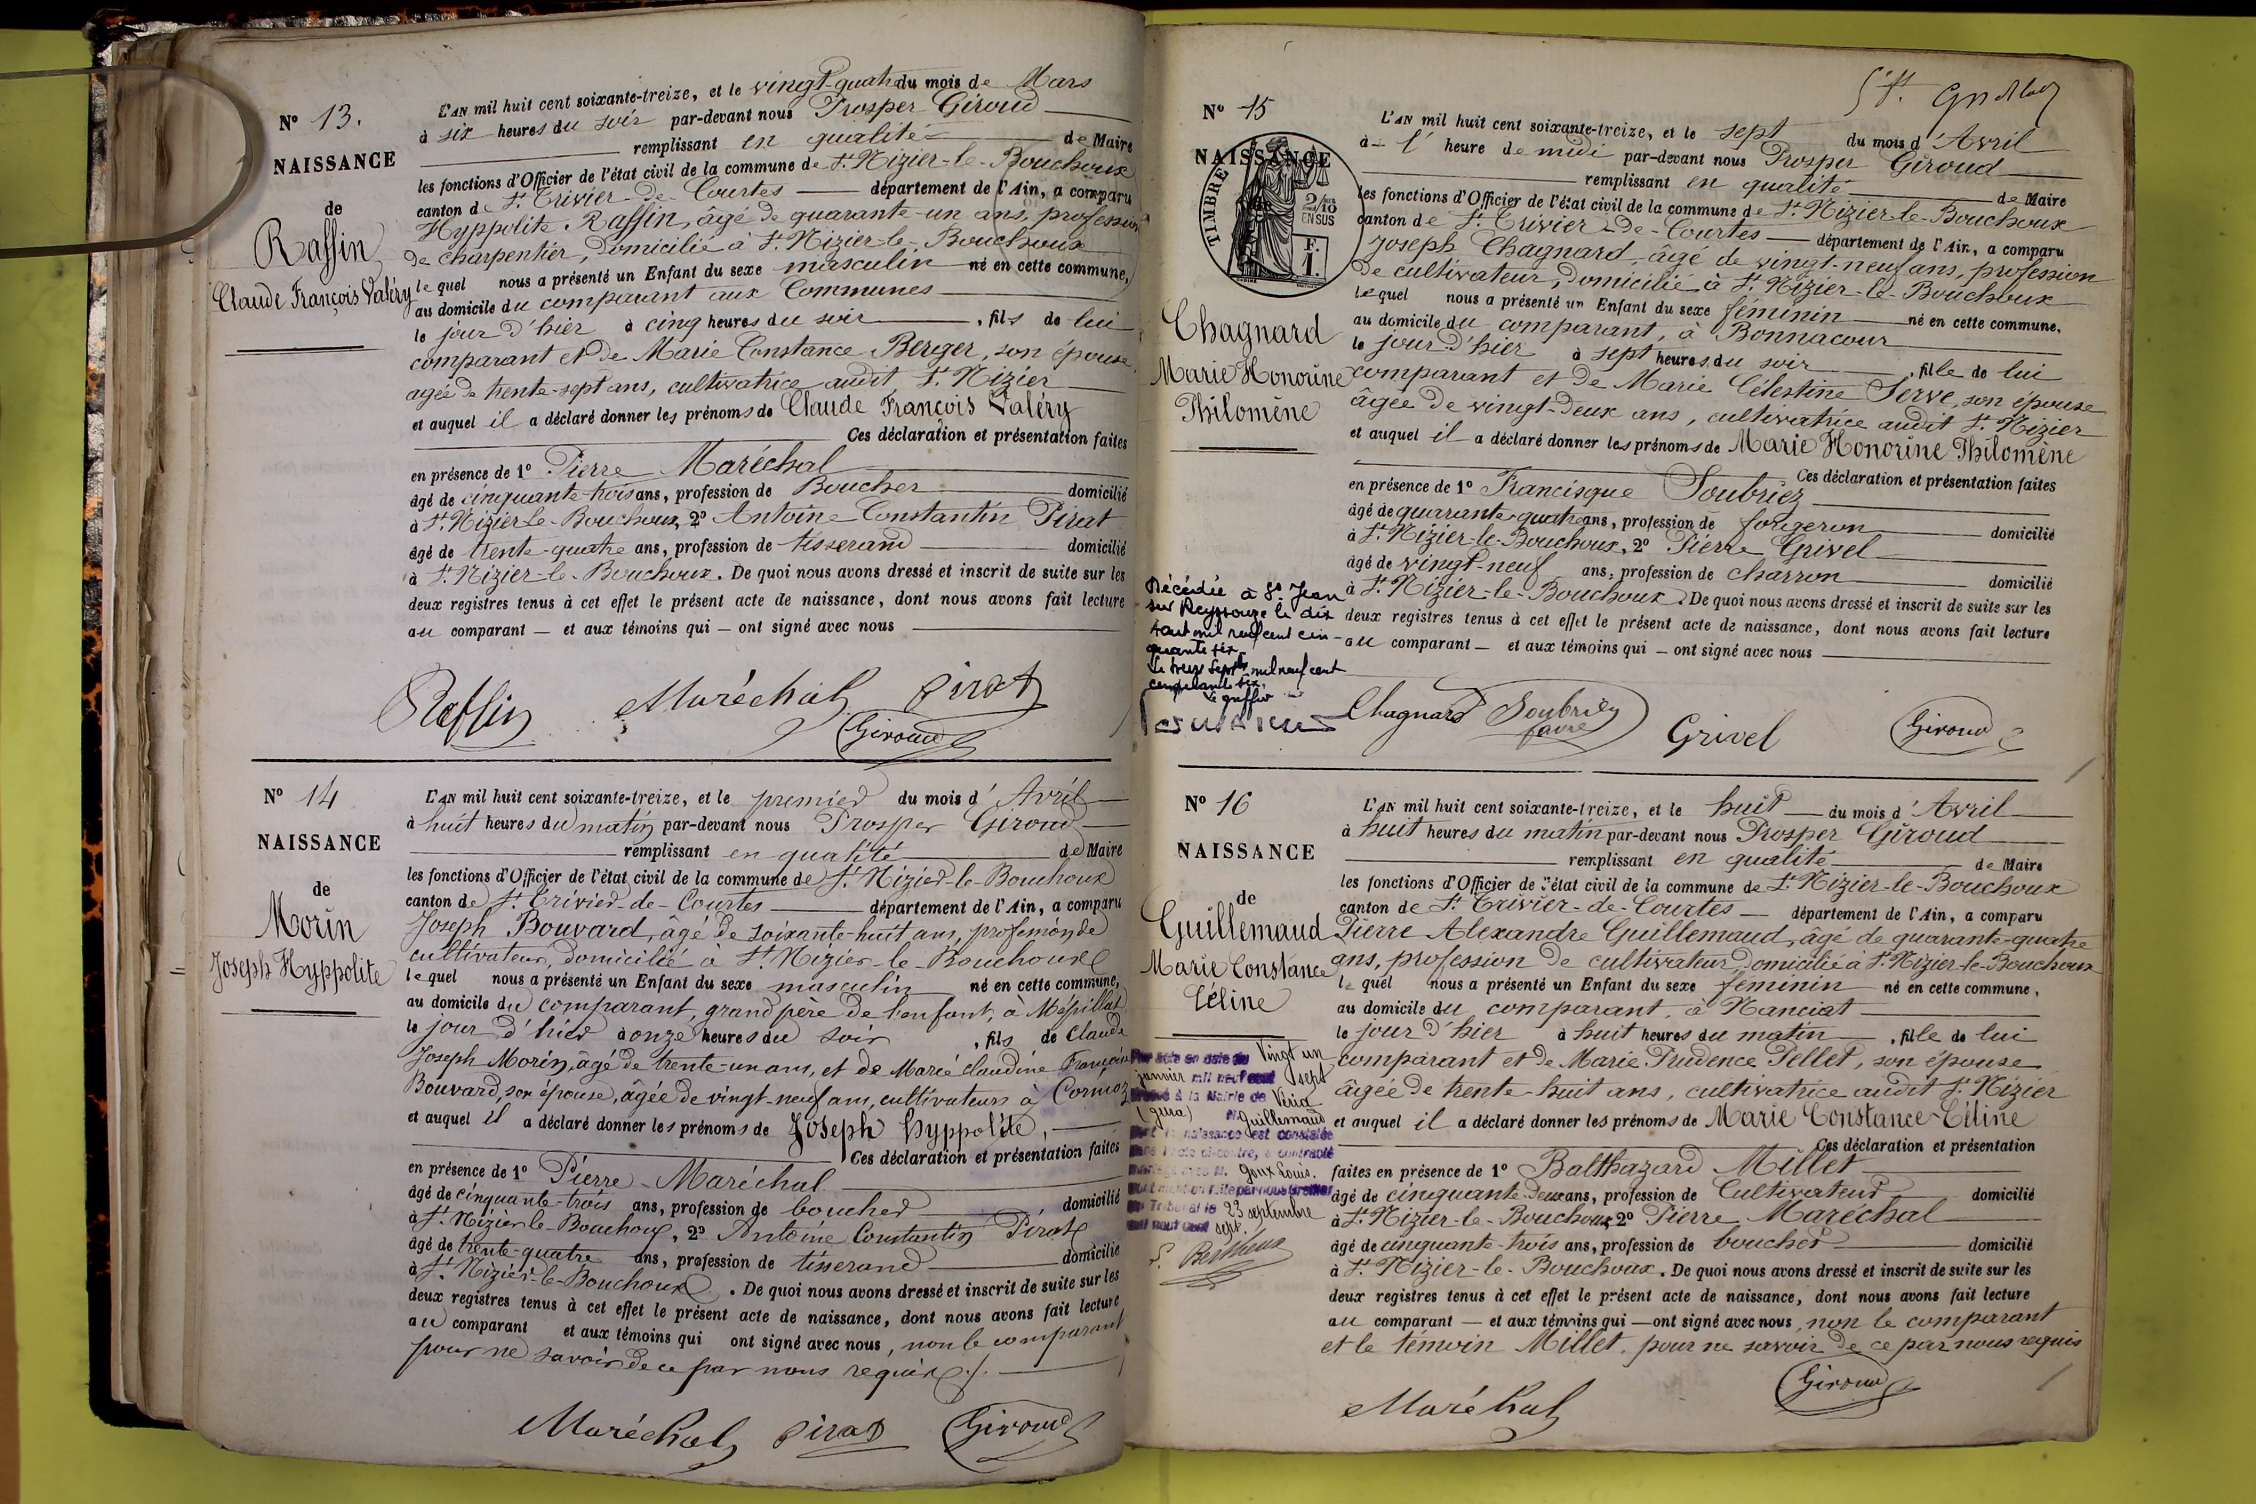 N° 13.
NAISSANCE
de
Raffin
Claude François Valéry
L'AN mil huit cent soixante-treize, et le vingt-quatre du mois de Mars
à six heures du soir par-devant nous Prosper Giroud
remplissant en qualité de Maire
les fonctions d'Officier de l'état civil de la commune de St. Nizier-le-Bouchoux
canton de St. Trivier-de-Courtes département de l'Ain, a comparu
Hyppolite Raffin, âgé de quarante-un ans, profession
de charpentier, domicilié à St. Nizier-le-Bouchoux
le quel nous a présenté un Enfant du sexe masculin né en cette commune,
au domicile du comparant aux Communes
le jour d'hier à cinq heures du soir, fils de lui
comparant et de Marie Constance Berger, son épouse,
agée de trente-sept ans, cultivatrice audit St. Nizier
et auquel il a déclaré donner les prénoms de Claude François Valéry
Ces déclaration et présentation faites
en présence de 1° Pierre Maréchal
âgé de cinquante-trois ans, profession de Boucher domicilié
à St. Nizier-le-Bouchoux, 2° Antoine Constantin Pirat
âgé de trente-quatre ans, profession de tisserand domicilié
à St. Nizier-le-Bouchoux. De quoi nous avons dressé et inscrit de suite sur les
deux registres tenus à cet effet le présent acte de naissance, dont nous avons fait lecture
au comparant — et aux témoins qui — ont signé avec nous
Raffin Maréchal Pirat
Giroud
N° 14
NAISSANCE
de
Morin
Joseph Hyppolite
L'AN mil huit cent soixante-treize, et le premier du mois d'Avril
à huit heures du matin par-devant nous Prosper Giroud
remplissant en qualité de Maire
les fonctions d'Officier de l'état civil de la commune de St. Nizier-le-Bouchoux
canton de St. Trivier-de-Courtes département de l'Ain, a comparu
Joseph Bouvard, âgé de soixante-huit ans, profession de
cultivateur, domicilié à St. Nizier-le-Bouchoux
le quel nous a présenté un Enfant du sexe masculin né en cette commune,
au domicile du comparant, grand père de l'enfant, à Mépillat
le jour d'hier à onze heures du soir, fils de Claude
Joseph Morin, âgé de trente-un ans, et de Marie Claudine Françoise
Bouvard, son épouse, âgée de vingt-neuf ans, cultivateurs à Cormoz
et auquel il a déclaré donner les prénoms de Joseph hyppolite,
Ces déclaration et présentation faites
en présence de 1° Pierre Maréchal
âgé de cinquante-trois ans, profession de boucher domicilié
à St. Nizier-le-Bouchoux, 2° Antoine Constantin Pirat
âgé de trente-quatre ans, profession de tisserand domicilié
à St. Nizier-le-Bouchoux. De quoi nous avons dressé et inscrit de suite sur les
deux registres tenus à cet effet le présent acte de naissance, dont nous avons fait lecture
au comparant et aux témoins qui ont signé avec nous, non le comparant
pour ne savoir de ce par nous requis
Maréchal Pirat Giroud
N° 15
NAISSANCE
TIMBRE
2/10
EN SUS
F.
1.
Chagnard
Marie Honorine
Philomène
L'AN mil huit cent soixante-treize, et le sept du mois d'Avril
à l'heure de midi par-devant nous Prosper Giroud
remplissant en qualité de Maire
les fonctions d'Officier de l'état civil de la commune de St. Nizier-le-Bouchoux
canton de St. Trivier-de-Courtes département de l'Ain, a comparu
Joseph Chagnard, âgé de vingt-neuf ans, profession
de cultivateur, domicilié à St. Nizier-le-Bouchoux
le quel nous a présenté un Enfant du sexe féminin né en cette commune,
au domicile du comparant, à Bonnacour
le jour d'hier à sept heures du soir, fille de lui
comparant et de Marie Célestine Serve, son épouse
âgée de vingt-deux ans, cultivatrice audit St. Nizier
et auquel il a déclaré donner les prénoms de Marie Honorine Philomène
Ces déclaration et présentation faites
en présence de 1° Francisque Soubriez
âgé de quarante-quatre ans, profession de forgeron domicilié
à St. Nizier-le-Bouchoux, 2° Pierre Grivel
âgé de vingt-neuf ans, profession de charron domicilié
à St. Nizier-le-Bouchoux. De quoi nous avons dressé et inscrit de suite sur les
deux registres tenus à cet effet le présent acte de naissance, dont nous avons fait lecture
au comparant — et aux témoins qui — ont signé avec nous
Décédée à St. Jean
sur Reyssouze le dix
août mil neuf cent cin-
quante six
Le treize Septbre mil neuf cent
cinquante six.
Le greffier
Chagnard Soubriez
favre Grivel Giroud
N° 16
NAISSANCE
de
Guillemaud
Marie Constance
Céline
L'AN mil huit cent soixante-treize, et le huit du mois d'Avril
à huit heures du matin par-devant nous Prosper Giroud
remplissant en qualité de Maire
les fonctions d'Officier de l'état civil de la commune de St. Nizier-le-Bouchoux
canton de St. Trivier-de-Courtes — département de l'Ain, a comparu
Pierre Alexandre Guillemaud, âgé de quarante-quatre
ans, profession de cultivateur, domicilié à St. Nizier-le-Bouchoux
le quel nous a présenté un Enfant du sexe féminin né en cette commune,
au domicile du comparant, à Nanciat
le jour d'hier à huit heures du matin, fille de lui
comparant et de Marie Prudence Pellet, son épouse
âgée de trente-huit ans, cultivatrice audit St. Nizier
et auquel il a déclaré donner les prénoms de Marie Constance-Céline
Ces déclaration et présentation
faites en présence de 1° Balthazard Millet
âgé de cinquante-deux ans, profession de Cultivateur domicilié
à St. Nizier-le-Bouchoux 2° Pierre Maréchal
âgé de cinquante-trois ans, profession de boucher domicilié
à St. Nizier-le-Bouchoux. De quoi nous avons dressé et inscrit de suite sur les
deux registres tenus à cet effet le présent acte de naissance, dont nous avons fait lecture
au comparant — et aux témoins qui — ont signé avec nous, non le comparant
et le témoin Millet, pour ne savoir de ce par nous requis
Par acte en date du Vingt un
janvier mil neuf cent sept
dressé à la Mairie de Véria
(Jura) Guillemaud
dont la naissance est constatée
dans l'acte ci-contre, a contracté
mariage avec M. Goux Louis.
Dont mention faite par nous Greffier
du Tribunal le 23 septembre
mil neuf cent sept.
Maréchal Giroud